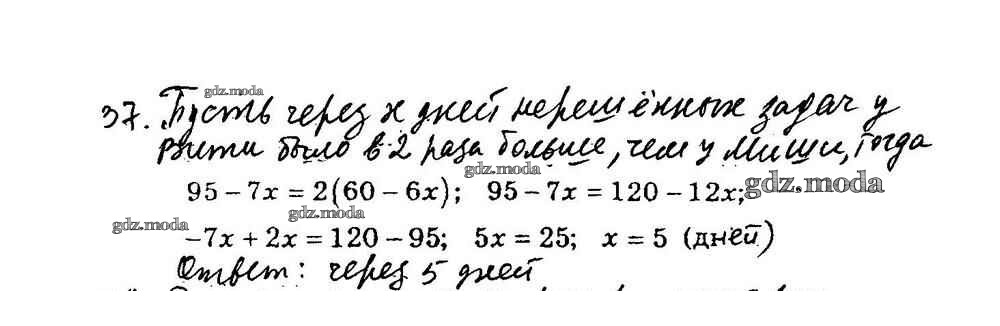 gdz.moda
37. Пусть через x дней нерешённых задач у
gdz.moda
Вити было в 2 раза больше, чем у Миши, тогда
gdz.moda
95 – 7x = 2(60 – 6x); 95 – 7x = 120 – 12x;
gdz.moda
gdz.moda
gdz.moda
–7x + 2x = 120 – 95; 5x = 25; x = 5 (дней)
Ответ: через 5 дней